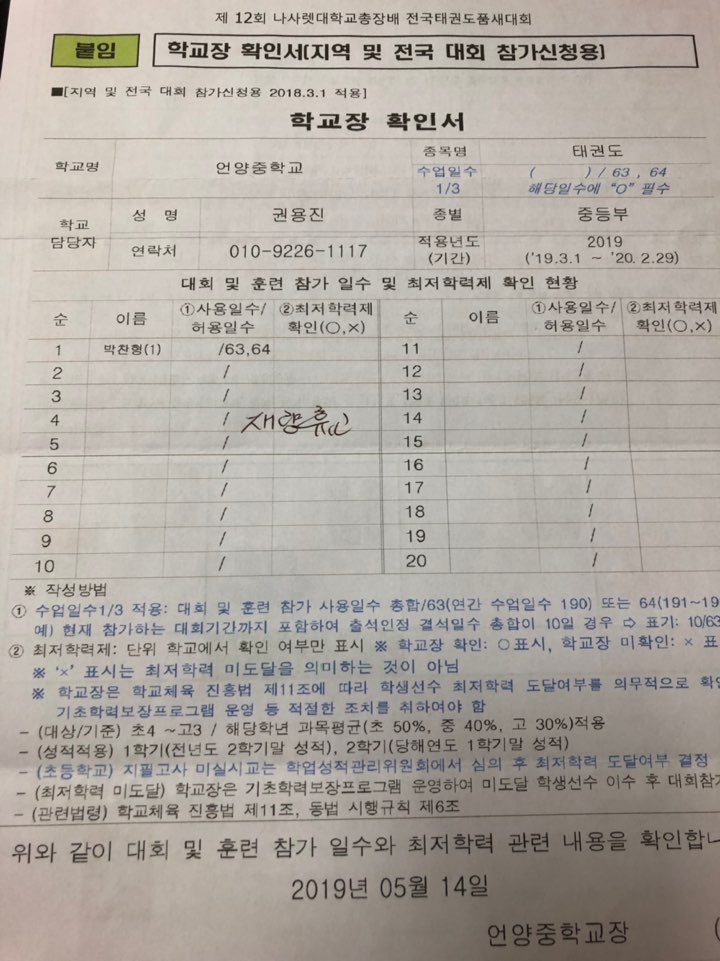 제 12회 나사렛대학교총장배 전국태권도품새대회
붙임 학교장 확인서(지역 및 전국 대회 참가신청용)
■[지역 및 전국 대회 참가신청용 2018.3.1 적용]
학교장 확인서
학교명 언양중학교 종목명 태권도
수업일수 1/3 ( ) / 63 , 64 해당일수에 "O" 필수
학교 담당자 성 명 권용진 종별 중등부
연락처 010-9226-1117 적용년도 (기간) 2019 ('19.3.1 ~ '20. 2.29)
대회 및 훈련 참가 일수 및 최저학력제 확인 현황
순 이름 ①사용일수/허용일수 ②최저학력제 확인(○,×) 순 이름 ①사용일수/허용일수 ②최저학력제 확인(○,×)
1 박찬형(1) /63,64 11 /
2 / 12 /
3 / 13 /
4 / 14 /
5 / 15 /
6 / 16 /
7 / 17 /
8 / 18 /
9 / 19 /
10 / 20 /
※ 작성방법
① 수업일수1/3 적용: 대회 및 훈련 참가 사용일수 총합/63(연간 수업일수 190) 또는 64(191~19
예) 현재 참가하는 대회기간까지 포함하여 출석인정 결석일수 총합이 10일 경우 ⇨ 표기: 10/63
② 최저학력제: 단위 학교에서 확인 여부만 표시 ※ 학교장 확인: ○표시, 학교장 미확인: × 표
※ '×' 표시는 최저학력 미도달을 의미하는 것이 아님
※ 학교장은 학교체육 진흥법 제11조에 따라 학생선수 최저학력 도달여부를 의무적으로 확인
기초학력보장프로그램 운영 등 적절한 조치를 취하여야 함
- (대상/기준) 초4 ~고3 / 해당학년 과목평균(초 50%, 중 40%, 고 30%)적용
- (성적적용) 1학기(전년도 2학기말 성적), 2학기(당해연도 1학기말 성적)
- (초등학교) 지필고사 미실시교는 학업성적관리위원회에서 심의 후 최저학력 도달여부 결정
- (최저학력 미도달) 학교장은 기초학력보장프로그램 운영하여 미도달 학생선수 이수 후 대회참가
- (관련법령) 학교체육 진흥법 제11조, 동법 시행규칙 제6조
위와 같이 대회 및 훈련 참가 일수와 최저학력 관련 내용을 확인합니
2019년 05월 14일
언양중학교장 (